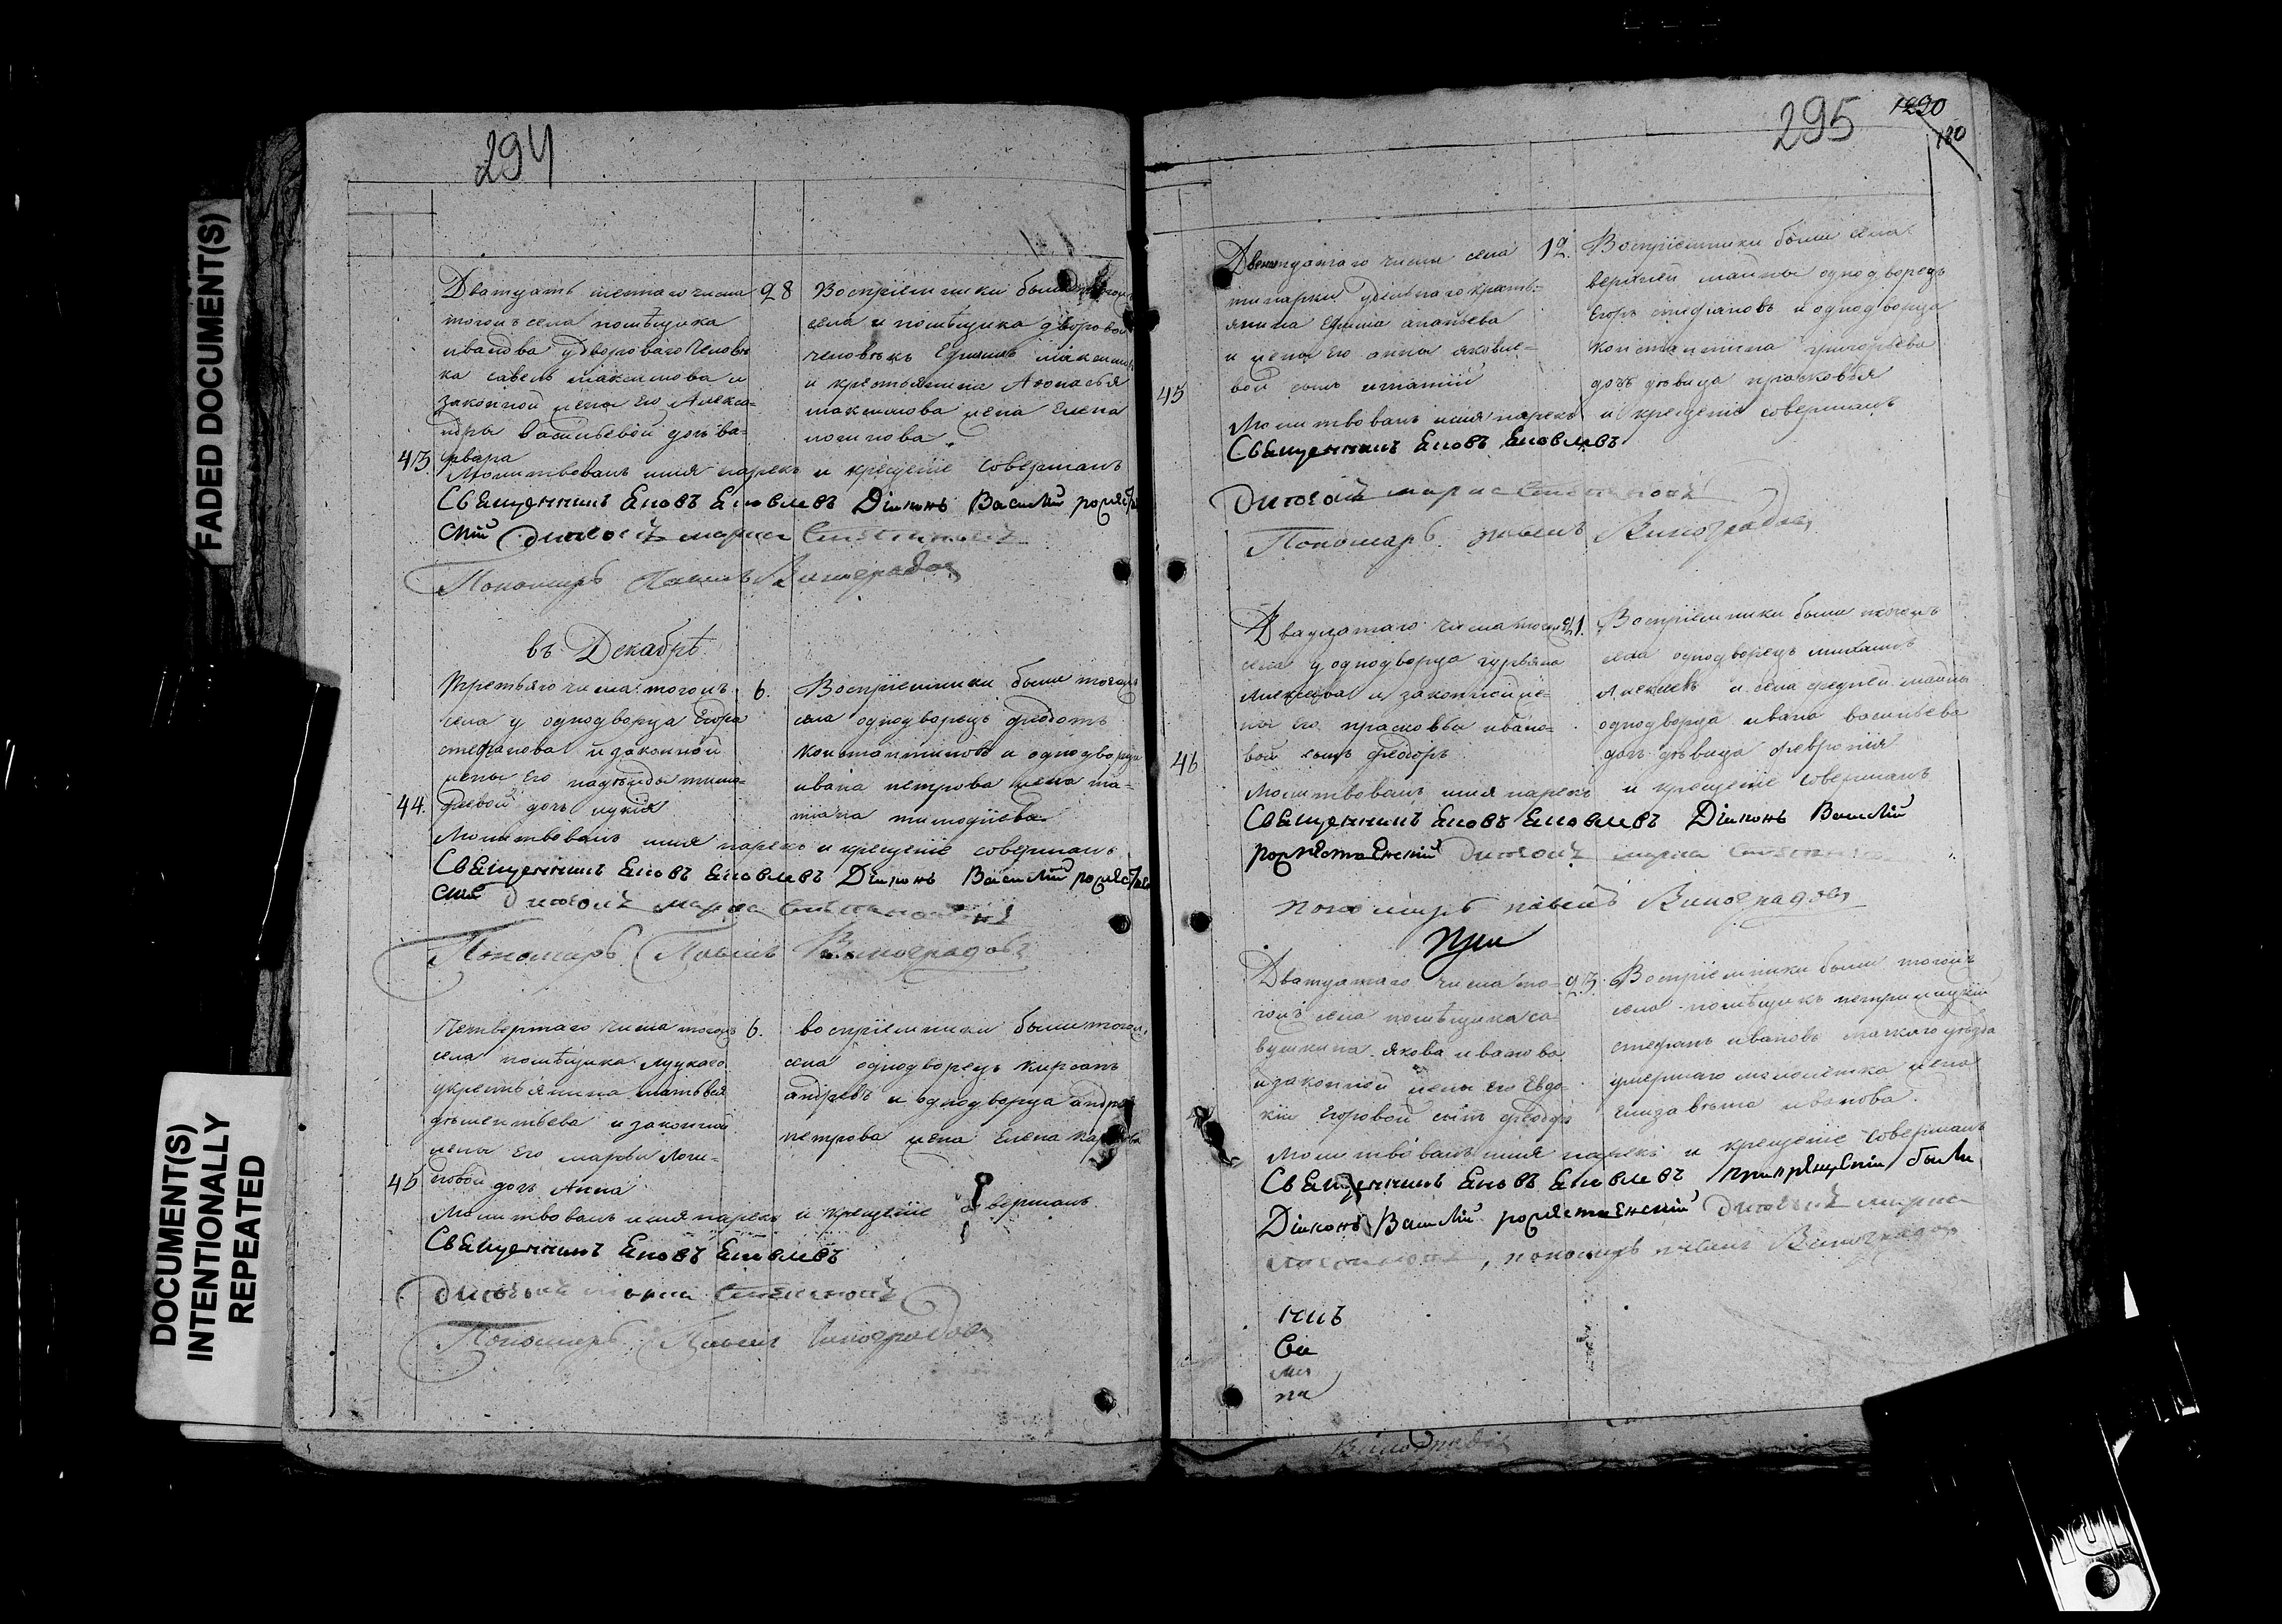 FADED DOCUMENT(S)
DOCUMENT(S)
INTENTIONALLY
REPEATED
294
Дватцать шестаго числа 28
тогожъ села помѣщика
иванова удвороваго человѣ
ка савелья максимова и
законной жены его Алекса=
ндры васильевой дочь ва=
43 рвара
Воспріемники были тогожъ
села и помѣщика дворовой
человѣкъ Ефимъ
и крестьянина Аѳонасья
максимова жена Елена
логинова.
Молитвовалъ имя нарекъ и крещеніе совершалъ
Священникъ Іаковъ Іаковлевъ Діаконъ Василій
скій дьячокъ марко Степановъ
Пономарь Павелъ Виноградовъ
въ Декабрѣ
Третьяго числа тогожъ 6.
села у однодворца Егора
стефанова и законной
жены его надѣжды тимо=
44. феевой дочь лукія
Воспріемники были тогожъ
села однодворецъ федотъ
константиновъ и однодворца
ивана петрова жена та=
тіана тимофіева
Молитвовалъ имя нарекъ и крещеніе совершалъ
Священникъ Іаковъ Іаковлевъ Діаконъ Василій
скій дьячокъ марко Степановъ
Пономарь Павелъ Виноградовъ
Четвертаго числа тогожъ 6.
села помѣщика луцкаго
укрестьянина матвѣя
дѣментьева и законной
жены его марѳы логи=
45 новой дочь Анна
воспріемники были тогожъ
села однодворецъ кирсанъ
андрѣевъ и однодворца
петрова жена Елена
Молитвовалъ имя нарекъ и крещеніе совершалъ
Священникъ Іаковъ Іаковлевъ
дьячокъ марко Степановъ
Пономарь Павелъ Виноградовъ
295 1290
180
Двенатцатаго числа села 12.
удѣльнаго кресть=
янина Ефима ананьева
и жены его анны яковле=
45 вой сынъ игнатій
Воспріемники были села
верхней майны однодворецъ
Егоръ стефановъ и однодворца
константина григорьева
дочь дѣвица прасковья
Молитвовалъ имя нарекъ и крещеніе совершалъ
Священникъ Іаковъ Іаковлевъ
дьячокъ марко Степановъ
Пономарь павелъ Виноградовъ
Двацатаго числа тогожъ 21.
села у однодворца гурьяна
Алексѣева и законной же=
ны его прасковьи ивано=
46 вой сынъ феодоръ
Воспріемники были тогожъ
села однодворецъ михаилъ
Алексѣевъ и села средней майны
однодворца ивана васильева
дочь дѣвица февронія
Молитвовалъ имя нарекъ и крещеніе совершалъ
Священникъ Іаковъ Іаковлевъ Діаконъ Василій
рожественскій дьячокъ марко Степановъ
пономарь павелъ Виноградовъ
при
Дватцатаго числа то= 23.
гожъ села помѣщика са=
вушкина якова иванова
и законной жены его Евдо=
кіи Егоровой сынъ феодоръ
Воспріемники были тогожъ
села помѣщикъ
стефанъ ивановъ уѣзда
умершаго жена
Елизавѣта иванова.
Молитвовалъ имя нарекъ и крещеніе совершалъ
Священникъ Іаковъ Іаковлевъ при крещеніи были
Діаконъ Василій рожественскій дьячокъ марко
Степановъ, пономарь павелъ Виноградовъ
Виноградовъ